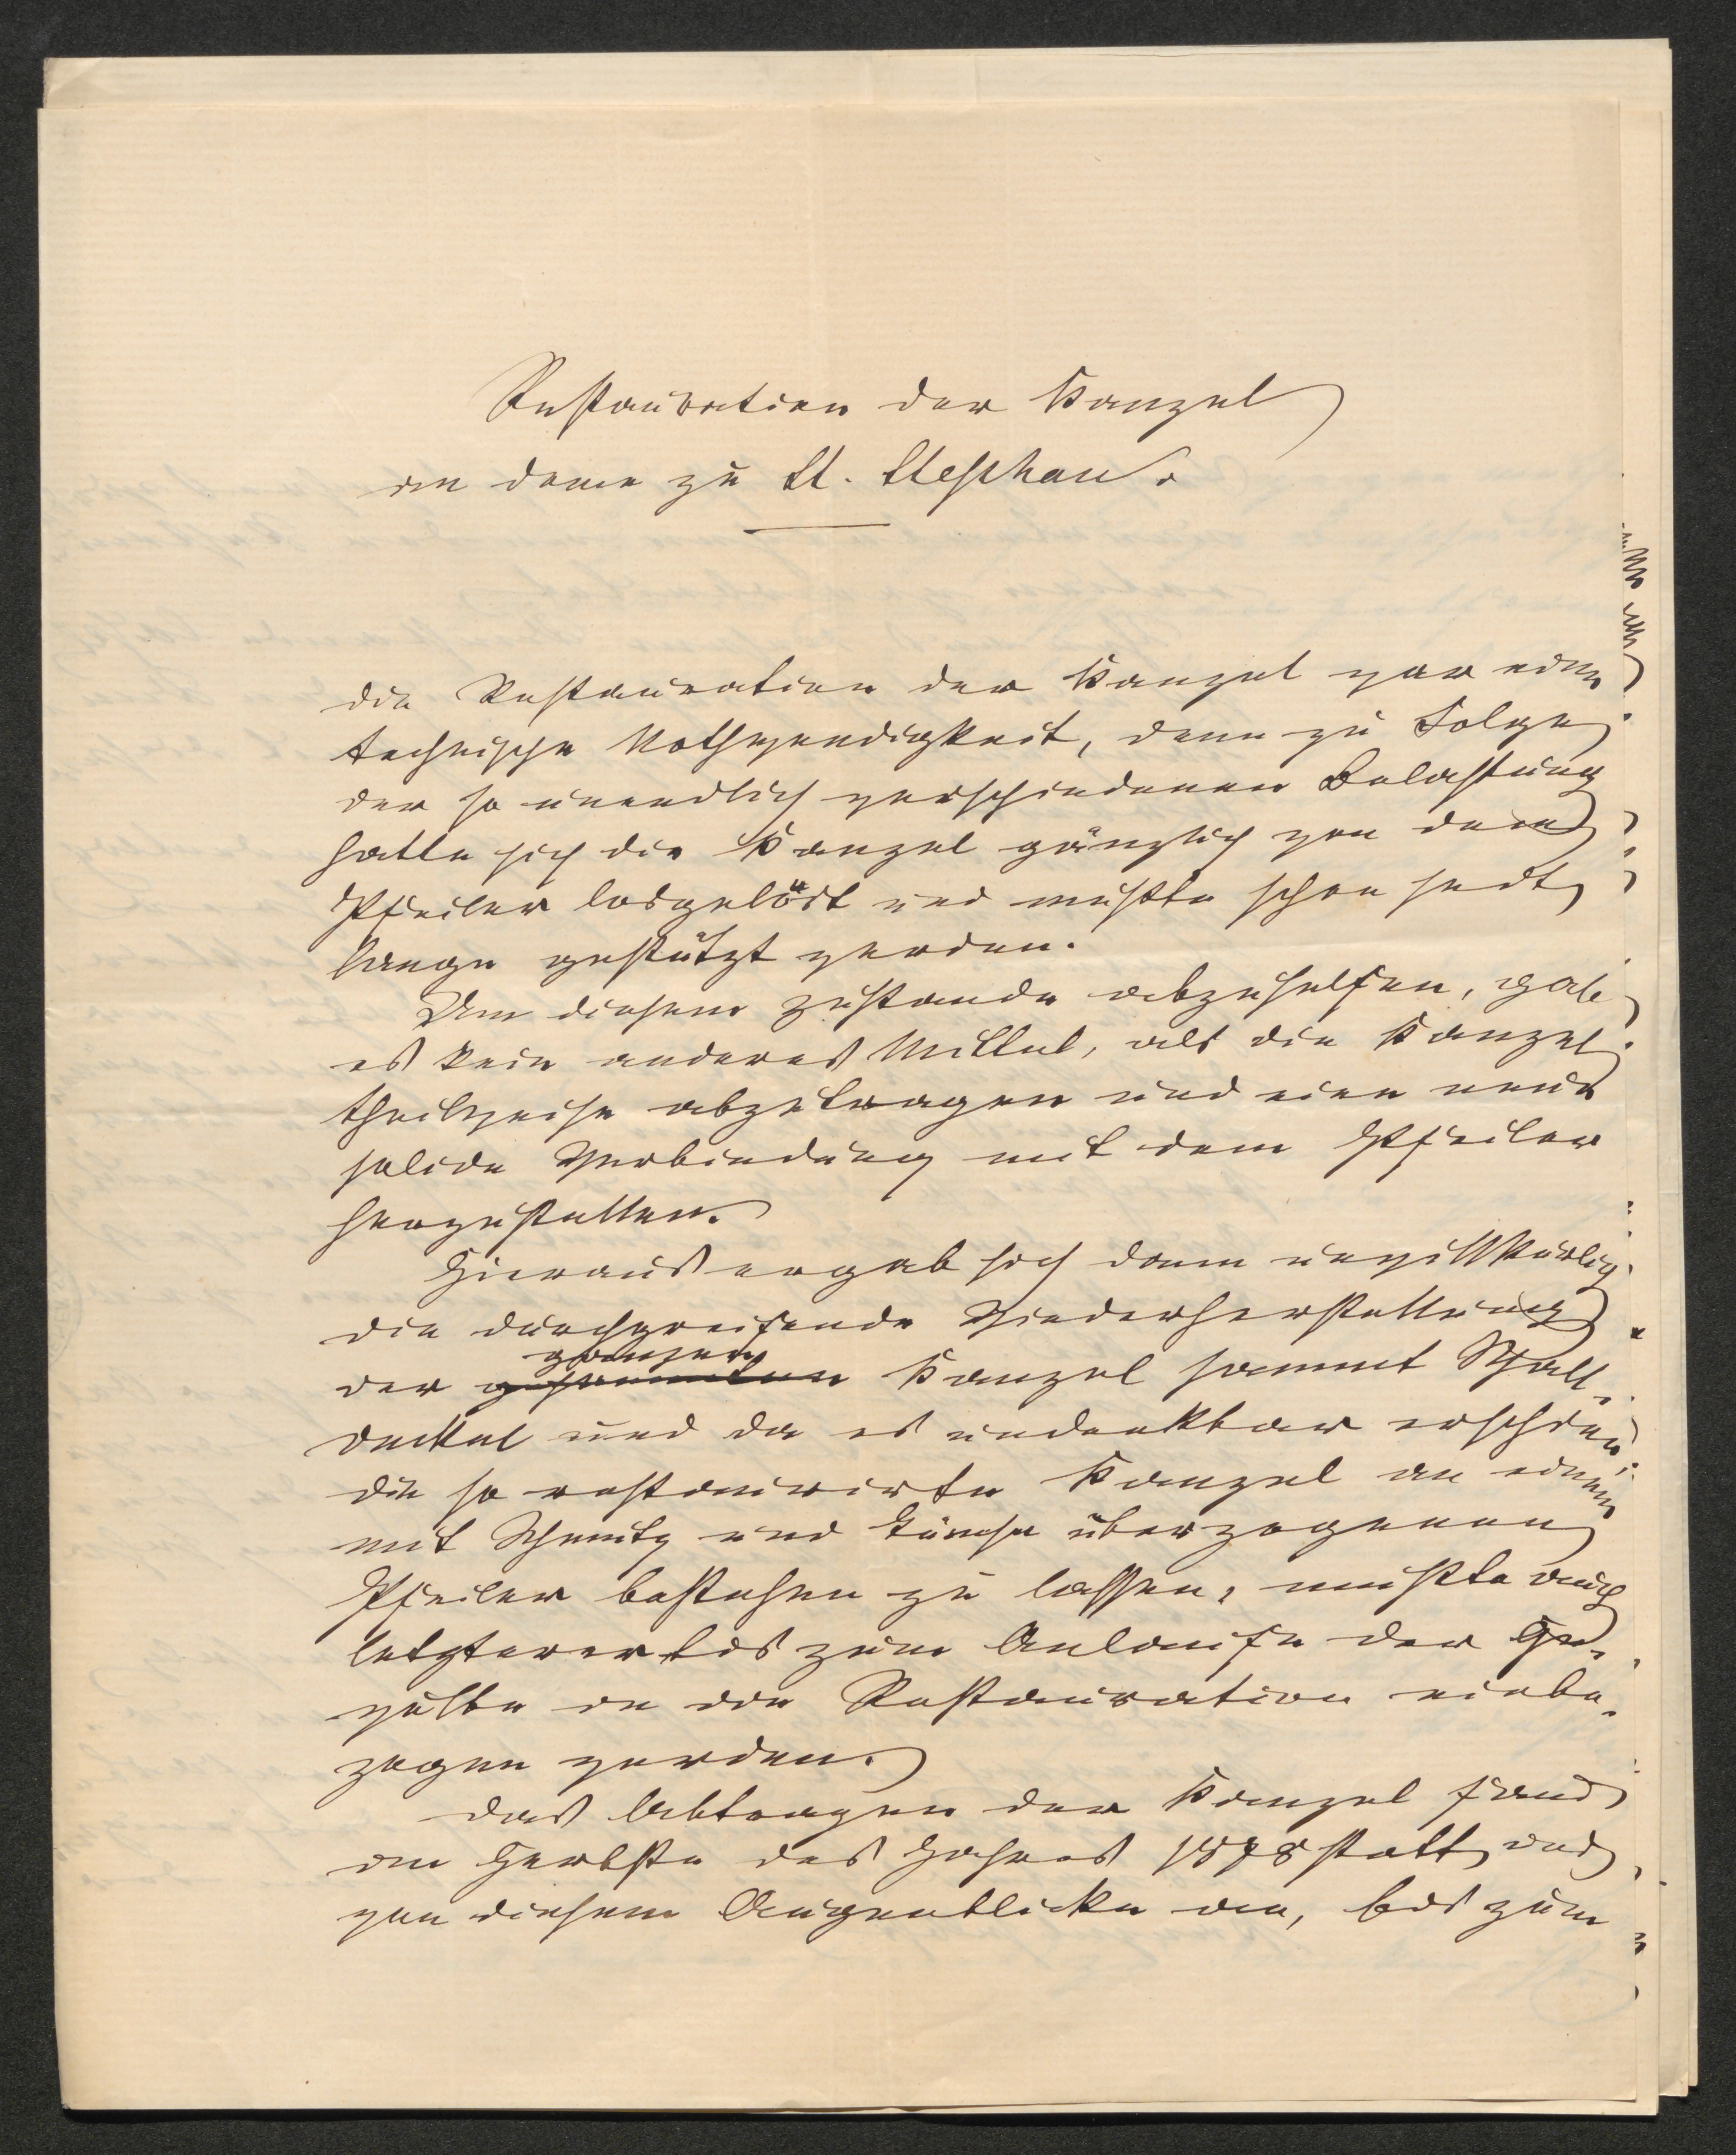 Restauration der Kanzel
im Dome zu St. Stephan.
Die Restauration der Kanzel war eine
technische Nothwendigkeit, denn zu Folge
der so unendlich verschiedenen Belastung
hatte sich die Kanzel gänzlich von dem
Pfeiler losgelöst und mußte schon seit
lange gestützt werden.
Um diesem Zustande abzuhelfen, gab
es kein anderes Mittel, als die Kanzel
theilweise abzutragen und eine neue
solide Verbindung mit dem Pfeiler
herzustellen.
Hieraus ergab sich dann unwillkürlich
die durchgreifende Wiederherstellung
ganzen
der gesammten Kanzel sammt Schall-
deckel und da es undenkbar erschien
die so restaurirte Kanzel an einem
mit Schmutz und Tünche überzogenen
Pfeiler bestehen zu lassen, mußte auch
letzterer bis zum Anlaufe der Ge-
wölbe in die Restauration einbe-
zogen werden.
Das Abtragen der Kanzel fand
im Herbste des Jahres 1878 statt, und
von diesem Augenblicke an, bis zum